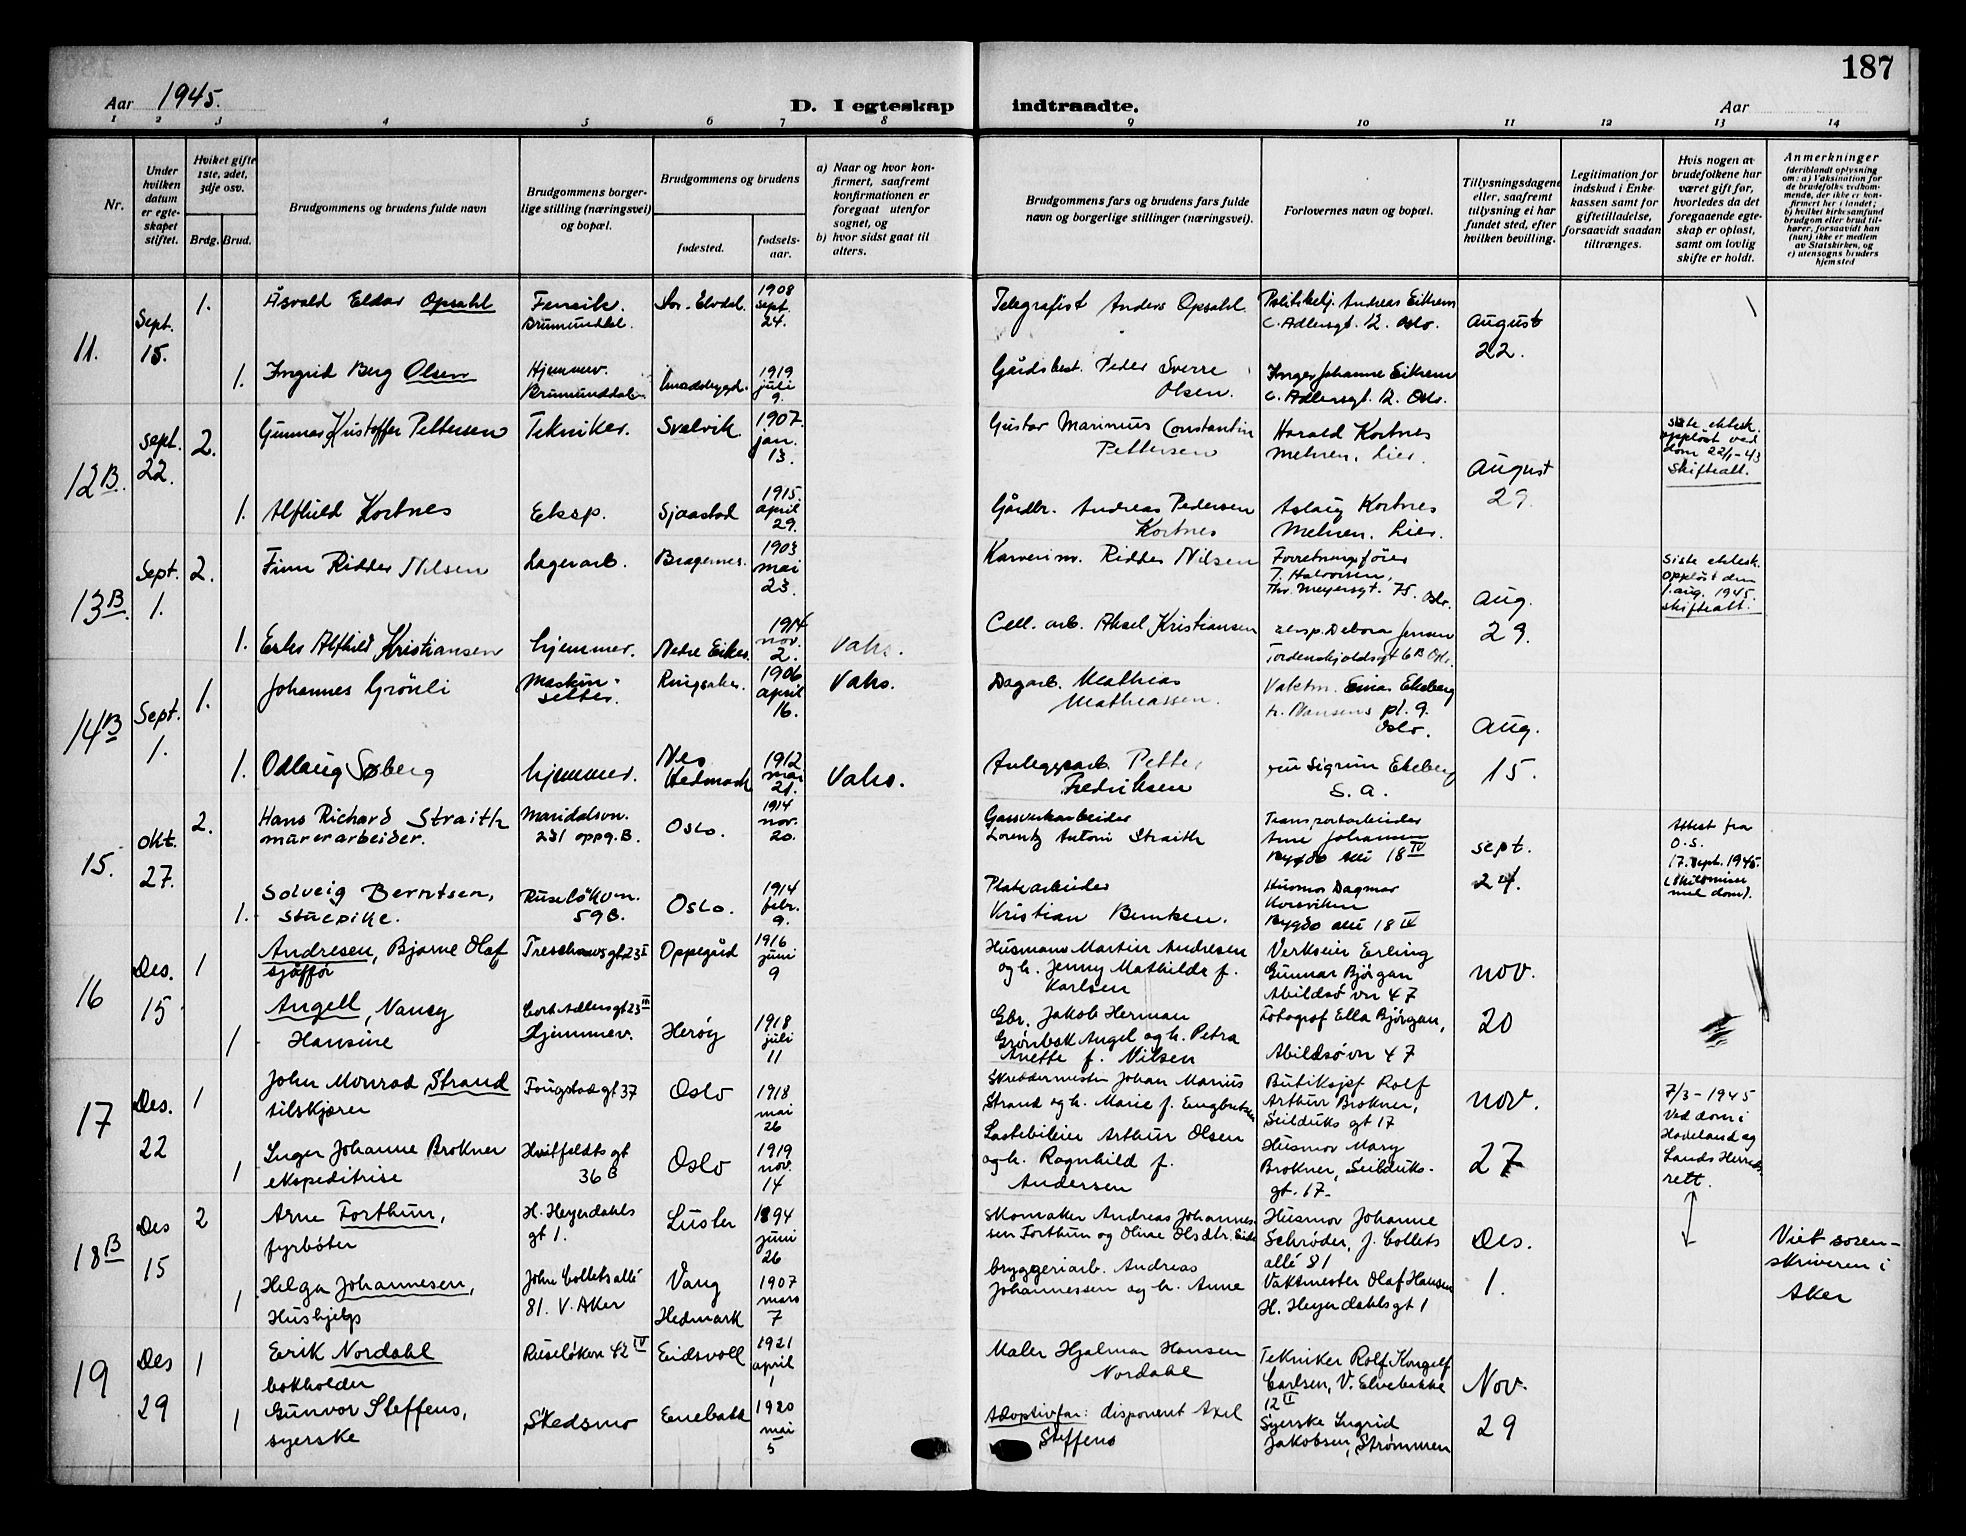 187
Aar 1945.
D. I egteskap indtraadte.
Aar
1 2 3 4 5 6 7 8 9 10 11 12 13 14
Nr.
Under hvilken datum er egteskapet stiftet.
Hvilket gifte 1ste, 2det, 3dje osv.
Brdg. Brud.
Brudgommens og brudens fulde navn
Brudgommens borgerlige stilling (næringsvei) og bopæl.
Brudgommens og brudens
fødested.
fødselsaar.
a) Naar og hvor konfirmert, saafremt konfirmationen er foregaat utenfor sognet, og
b) hvor sidst gaat til alters.
Brudgommens fars og brudens fars fulde navn og borgerlige stillinger (næringsvei).
Forlovernes navn og bopæl.
Tillysningsdagene eller, saafremt tillysning ei har fundet sted, efter hvilken bevilling.
Legitimation for indskud i Enkekassen samt for giftetilladelse, forsaavidt saadan tiltrænges.
Hvis nogen av brudefolkene har været gift før, hvorledes da det foregaaende egteskap er opløst, samt om lovlig skifte er holdt.
Anmerkninger (deriblandt oplysning om: a) Vaksination for de brudefolks vedkommende, der ikke er konfirmert her i landet; b) hvilket kirkesamfund brudgom eller brud tilhører, forsaavidt han (hun) ikke er medlem av Statskirken, og c) utensogns bruders hjemsted
11. Sept. 15. 1. Åsvald Eldar Opsahl Fenrik. Brumunddal. Stor-Elvdal. 1908 sept. 24. Telegrafist Anders Opsahl. Andreas Eikrem C. Adlersgt. 12. Oslo. August 22.
1. Ingrid Berg Olsen Hjemmev. Brumunddalen 1919 juli 9. Gårdsbest. Peder Sverre Olsen. Inger Johanne Eikrem C. Adlersgt. 12. Oslo.
12B. Sept. 22. 2. Gunnar Kristoffer Pettersen Tekniker. Svelvik 1907. jan. 13. Gustav Marinius Constantin Pettersen Harald Kortnes Melnen, Lier. August 29. Siste ektesk. oppløst ved dom 22/1-43 skifteatt.
1. Alfhild Kortnes Eksp. Sjaastad 1915. april 29. Gårdbr. Andreas Pedersen Kortnes Aslaug Kortnes Melnen, Lier.
13B. Sept. 1. 2. Finn Ridder Nilsen Lagerarb. Bragernes. 1903 mai 23. Ridder Nilsen Forretningsfører T. Halvorsen, Thv. Meyersgt. 75. Oslo. Aug. 29. Siste ektesk. oppløst den 1. aug. 1945. skifteatt.
1. Alfhild Kristiansen hjemmev. Nedre Eiker 1914 nov. 2. Vaks. Cell. arb. Aksel Kristiansen eksp. Debora Jensen Tordenskjoldsgt 6B Oslo.
14B Sept. 1. 1. Johannes Grönli Maskinsetter. Ringsaker. 1906 april 16. Vaks. Dagarb. Mathias Matheassen. Vaktm. Einar Ekeberg Nansens pl. 9. Oslo. Aug. 15.
1. Odlaug Søberg hjemmev. Nes Hedmark 1912 mai 21. Vaks. Anleggsarb. Petter Fredriksen Fru Sigrun Ekeberg S. a.
15. Okt. 27. 2. Hans Richard Straith murerarbeider. Maridalsvn. 231 oppg. B. Oslo. 1914 nov. 20. Gassverkarbeider Lorentz Antoni Straith Transportarbeider Arne Johansen Bygdø allé 18 IV sept. 24. Attest fra O.S. 17. sept. 1945. (Skilsmisse med dom).
1. Solveig Berntsen, stuepike. Ruseløkvn. 59B. Oslo. 1914 febr. 9. Platearbeider Kristian Husmor Dagmar Korsviken Bygdø allé 18 IV
16 Des. 15 1 Andresen, Bjarne Olaf sjåffør Treschowsgt 23 Oppegård 1916 juni 9 Martin Andresen og h. Jenny Mathilde f. Karlsen Verkseier Erling Gunnar Bjørgan Abildsø vn 47 nov. 20
1 Angell, Nancy Hansine Cort Adlersgt 23 III Hjemmev. Herøy 1918 juli 11 Gbr. Jakob Herman Grønbek Angel og h. Petra Anette f. Nilsen Fotograf Ella Bjørgan, Abildsøvn 47
17 Des. 22 1 John Monrad Strand tilskjærer Fougstadgt 37 Oslo 1918 mai 26 Skreddermester Johan Marius Strand og h. Marie f. Engbretsen Butiksjef Rolf Arthur Brokner, Seilduks gt 17 nov. 27 7/3-1945 Ved dom i Hadeland og Lands Herredsrett.
1 Inger Johanne Brokner ekspeditrise Hvitfeldts gt 36B Oslo 1919 nov. 14 Lastebileier Arthur Olsen og h. Ragnhild f. Andersen Husmor Mary Brokner, Seilduks-gt. 17-
18B Des 15 2 Arne Forthun, fyrbøter H. Heyerdahls gt 1. Luster 1894 juni 26 Skomaker Andreas Johannessen Forthun og Oline Olsdtr. Eide Husmor Johanne Schrøder, J. Collets allé 81 Des. 1. Viet sorenskriveren i Aker
1 Helga Johannesen, Hushjelp John Collets allé 81. V. Aker Vang Hedmark 1907 mars 7 bryggeriarb. Andreas Johannessen og h. Anne Vaktmester Olaf Hansen H. Heyerdahlsgt 1
19 Des 29 1 Erik Nordahl bokholder Ruseløkvn 42 IV Eidsvoll 1921 april 1 Maler Hjalmar Hansen Nordahl Tekniker Rolf Kongelf Carlsen, V. Elvebakke 12 I Nov. 29
1 Gunvor Steffens, syerske Skedsmo Enebakk 1920 mai 5 Adoptivfar: disponent Axel Steffens Syerske Ingrid Jakobsen, Strømmen